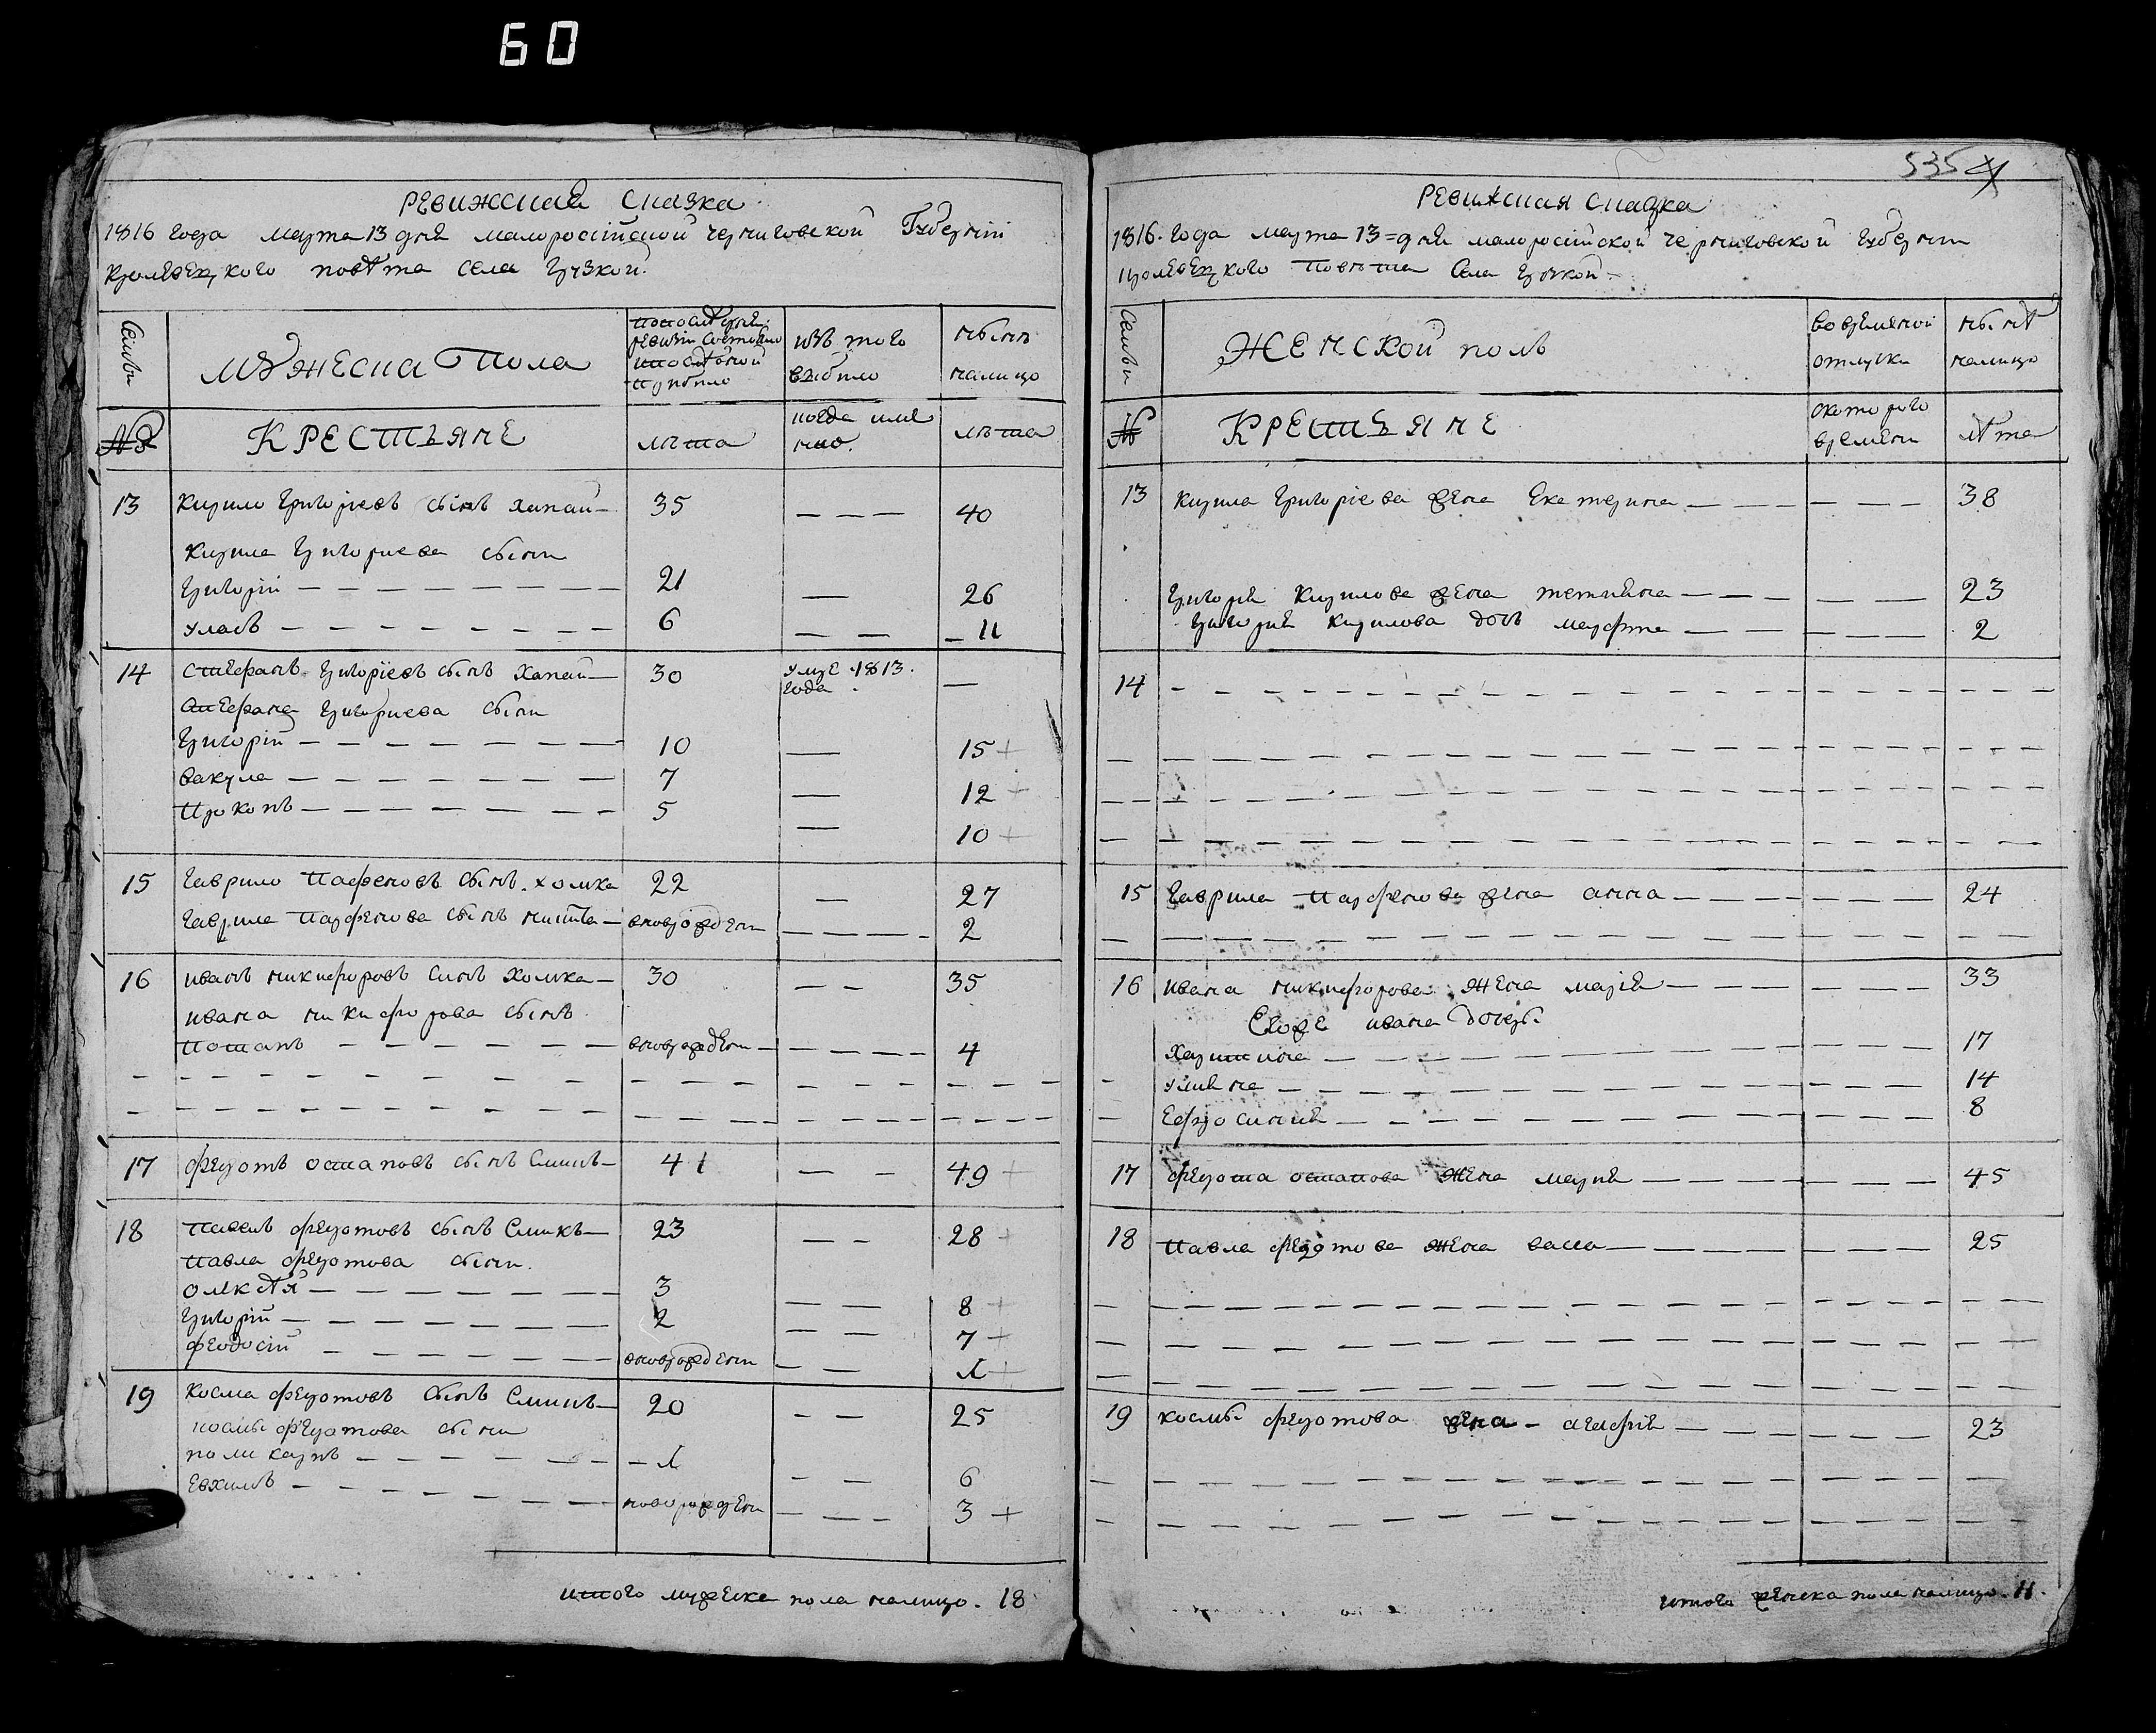 60
РЕВИЖСНАЯ СКАЗКА
1816 года марта 13 дня малоросѣйской черниговской Губернѣи
кролевецкого повѣта села грузкой.
Семьи
МУЖЕСКА Пола
Попоследней ревизіи Состояло и после оной прибыло
изъ того выбыло
нынѣ налицо
№
КРЕСТЬЯНЕ
лѣта
когда имянно.
лѣта
13 Кирило Григоріевъ сынъ хапай — 35 — — — 40
Кирила Григориева сыни
Григорій — 21 — 26
Уласъ — 6 — — 11
14 Стефанъ Григоріевъ сынъ Хапай — 30 умре 1813. года —
Стефана Григориева сыни
Григорій — 10 — 15 +
Вакула — 7 — 12 +
Прокопъ — 5 — 10 +
15 Гаврило Парфеновъ сынъ хомка 22 — 27
Гаврила Парфенова сынъ никита — вновьрожденъ — — — 2
16 иванъ никифоровъ синъ Хомка — 30 — — 35
ивана никифорова сынъ
Потапъ — вновьрожденъ — — — 4
17 федотъ остаповъ сынъ Слипъ — 41 — — 49 +
18 Павелъ федотовъ сынъ Слипъ — 23 — — 28 +
Павла федотова сыни.
олексѣй — 3 — — 8 +
Григорій — 2 — — 7 +
феодосій — вновьрожденъ — — 1 +
19 Косма федотовъ сынъ Слипъ — 20 — — 25
космы федотова сыни
поликарпъ — 1 — — 6
Евхимъ — новорожденъ — — — 3 +
итого мужеска пола налицо. 18
535
РЕВИЖСНАЯ СКАЗКА
1816. года марта 13 = дня малоросѣйской черниговской губерніи
кролевецкого Повѣта Села грузкой —
Семьи
ЖЕНСКОЙ полъ
во временной отлучки
нынѣ налицо
№
КРЕСТЬЯНЕ
скоторого времени
лѣта
13 Кирила Григоріева жена Екатерина — — — — 38
Григорія Кирилова жена татияна — — — 23
Григорія Кирилова дочь марфта — — — 2
14
15 Гаврила Парфенова жена анна — — — 24
16 ивана никифорова жена марія — — — 33
Егоже ивана дочеры
Харитина — — — 17
улияна — — — 14
Ефросинія — — — 8
17 федота остапова жена мария — — — 45
18 Павла федотова жена васса — — — 25
19 космы федотова жена — агафія — — — 23
итого женска пола налицо. 11.